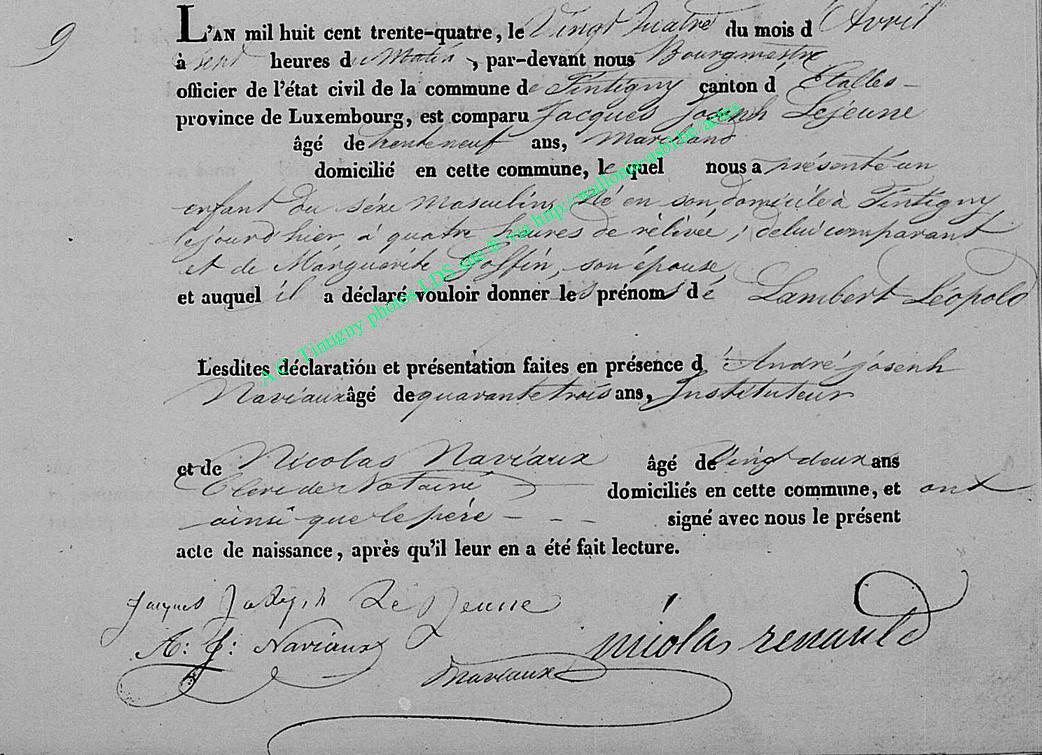 9
L'AN mil huit cent trente-quatre, le Vingt quatre du mois d'Avril
à sept heures du Matin, par-devant nous Bourgmestre
officier de l'état civil de la commune de Tintigny canton d'Etalles
province de Luxembourg, est comparu Jacques Joseph Lejeune
âgé de trente neuf ans, Marchand
domicilié en cette commune, le quel nous a présenté un
enfant du séxe Masculin, Né en son domicile à Tintigny
lejourd'hier, à quatre heures de rélivée, delui comparant
et de Marguerite Goffin, son épouse,
et auquel il a déclaré vouloir donner les prénoms dé Lambert Léopold
Lesdites déclaration et présentation faites en présence d'André joseph
Naviaux âgé de quarante trois ans, Instituteur
et de Nicolas Naviaux âgé de Vingt deux ans
Clerc de Notaire domiciliés en cette commune, et ont
ainsi que le père - - - signé avec nous le présent
acte de naissance, après qu'il leur en a été fait lecture.
Jacques Joseph Le Jeune
A: J: Naviaux
Naviaux
nicolas renauld
A.G. Tintigny photos LDS site © via http://wallonia-asbl.be/actes